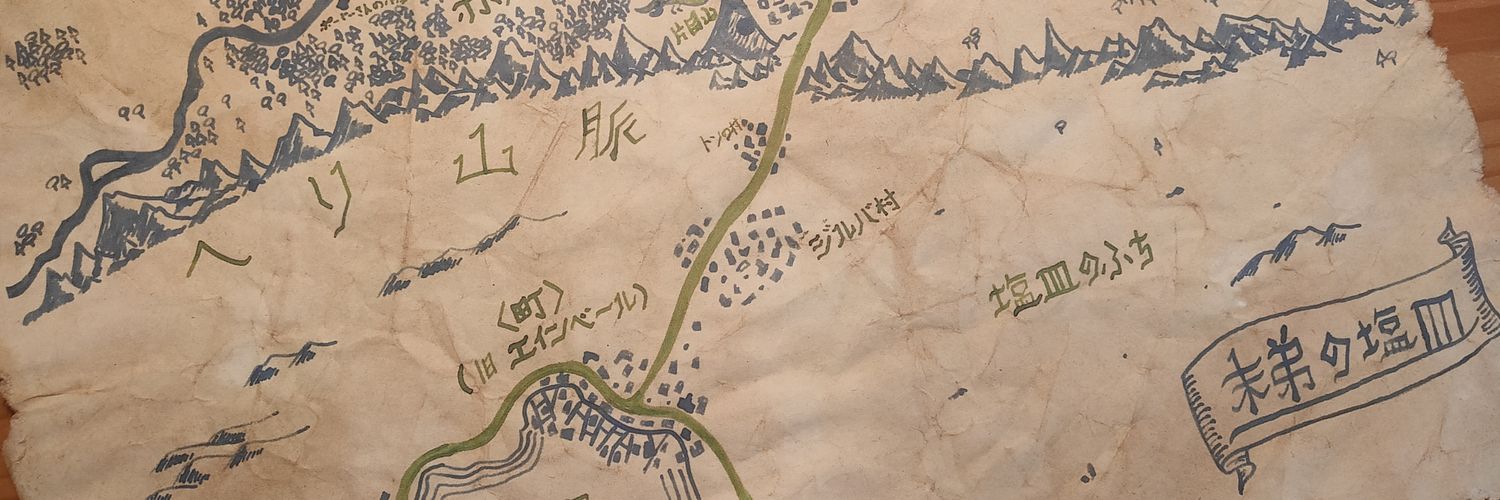 片目山
へり山脈
トンの村
ジルバ村
塩皿のふち
〈町〉
(旧 エインベール)
梯の塩皿